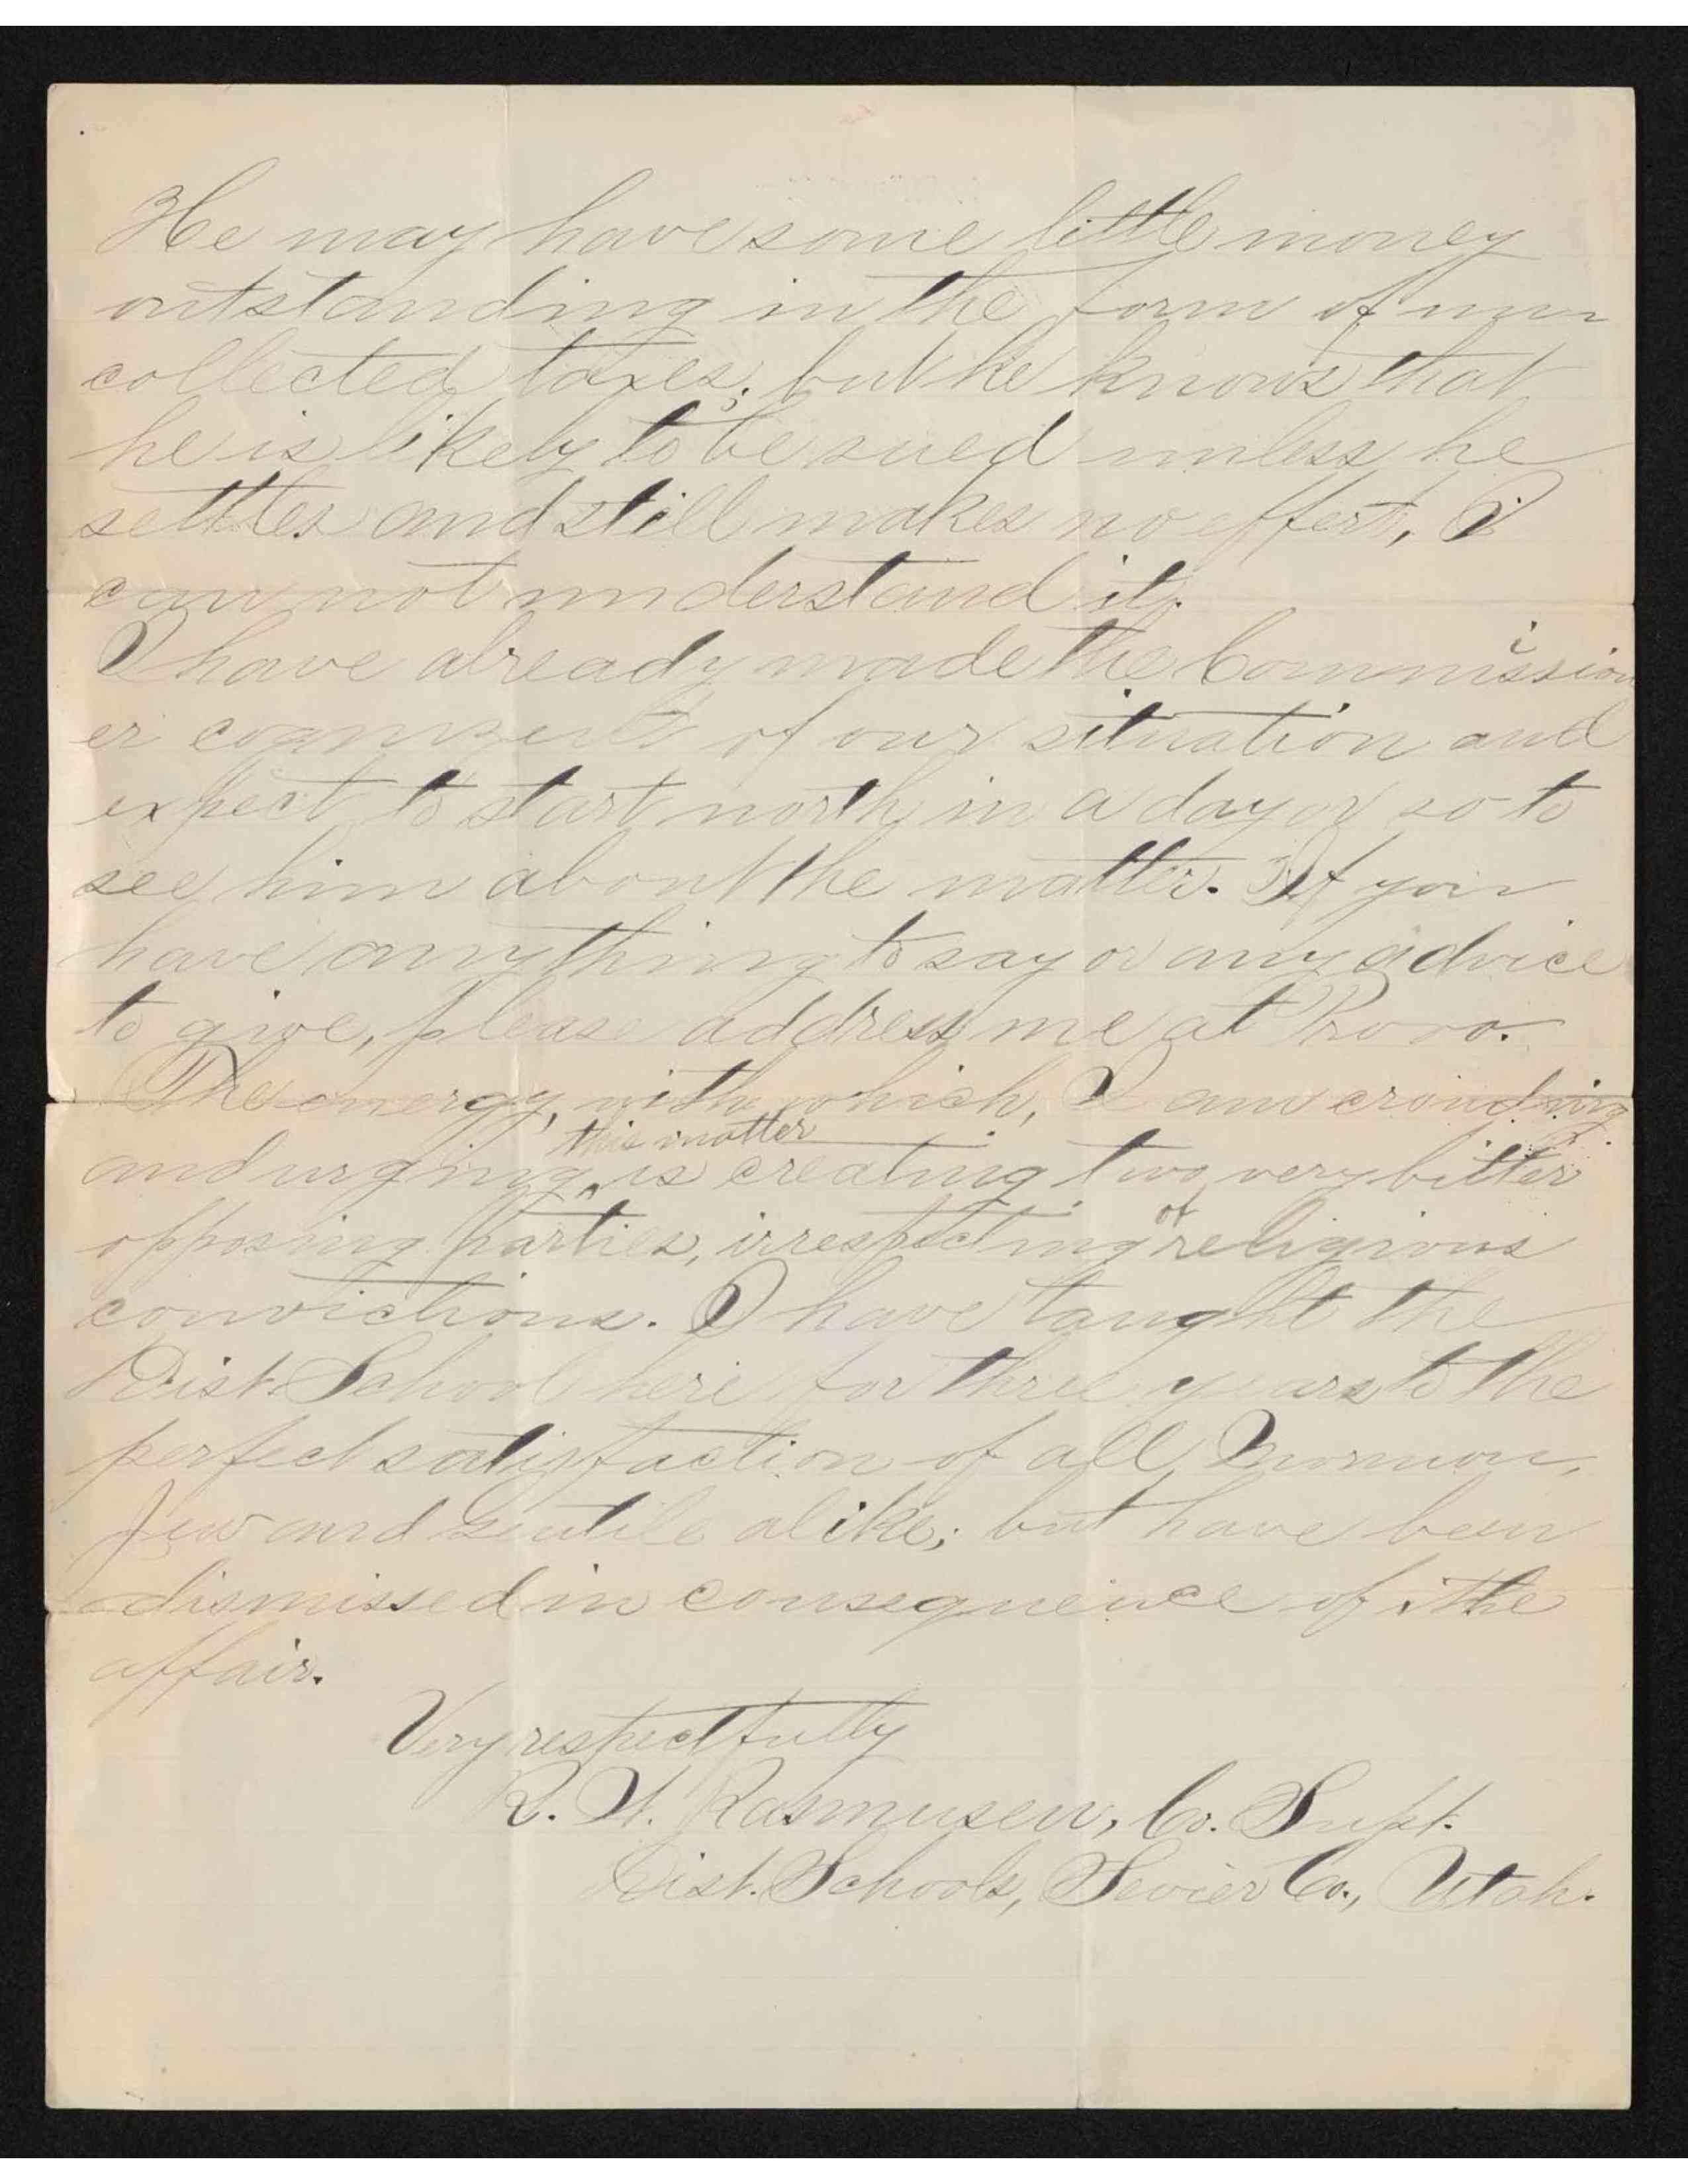 He may have some little money
outstanding in the form of un
collected taxes; but he knows that
he is likely to be sued unless he
settles and still makes no effort, I
can not understand it.
I have already made the Commission
er cognizent of our situation and
expect to start north in a day or so to
see him about the matter. If you
have anything to say or any advice
to give, please address me at Provo.
The energy, with which, I am crowding
this matter
and urging ^ is creating two very bitter
of
opposing parties, irrespecting religious
convictions. I have taught the
Dist. School here for three years to the
perfect satisfaction of all Mormon,
Jew and Gentile alike; but have been
dismissed in consequence of the
affair.
Very respectfully
Rasmusen, Co. Supt.
Dist. Schools, Sevier Co., Utah.